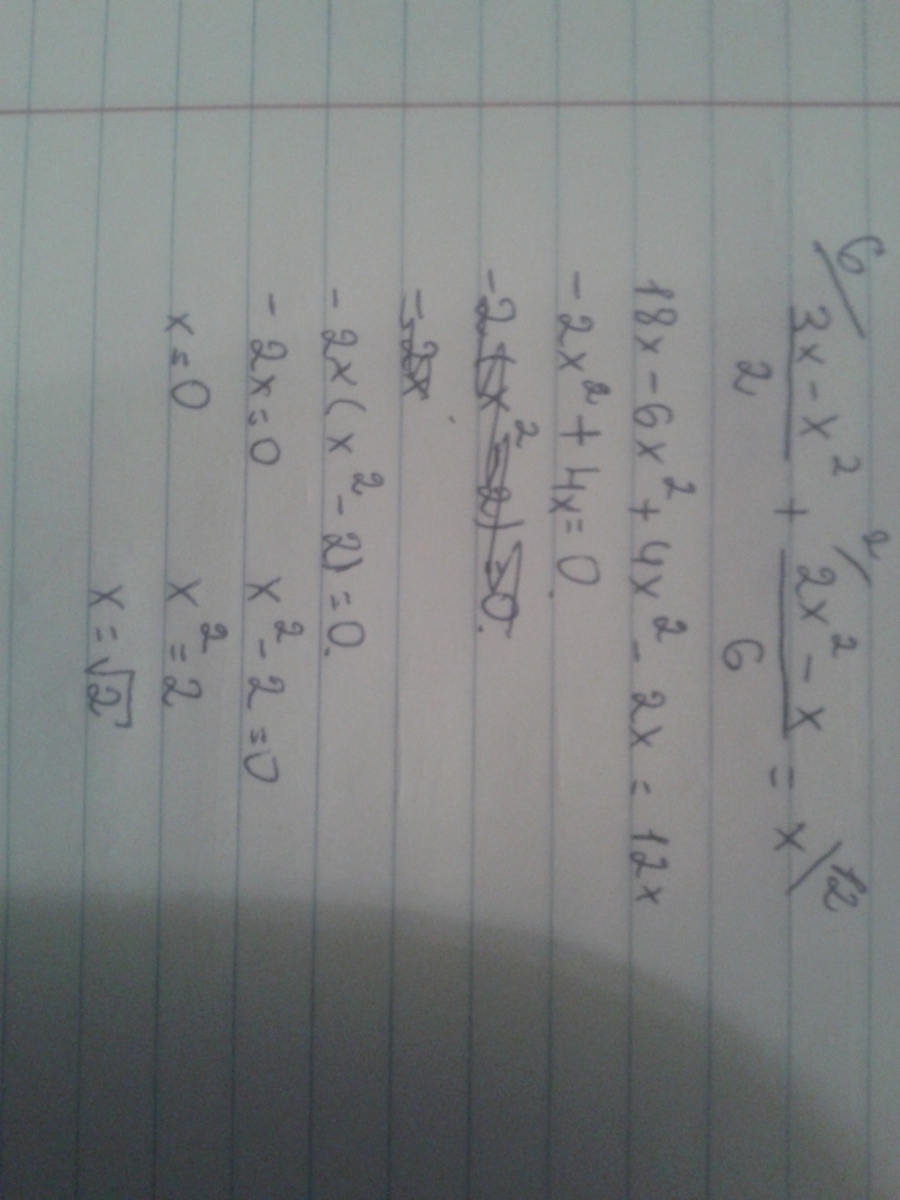 6/ 3x - x² / 2 + 2/ 2x² - x / 6 = x /12
18x - 6x² + 4x² - 2x = 12x
- 2x² + 4x = 0.
- 2x(x² - 2) = 0.
- 2x = 0 x² - 2 = 0
x = 0 x² = 2
x = √2